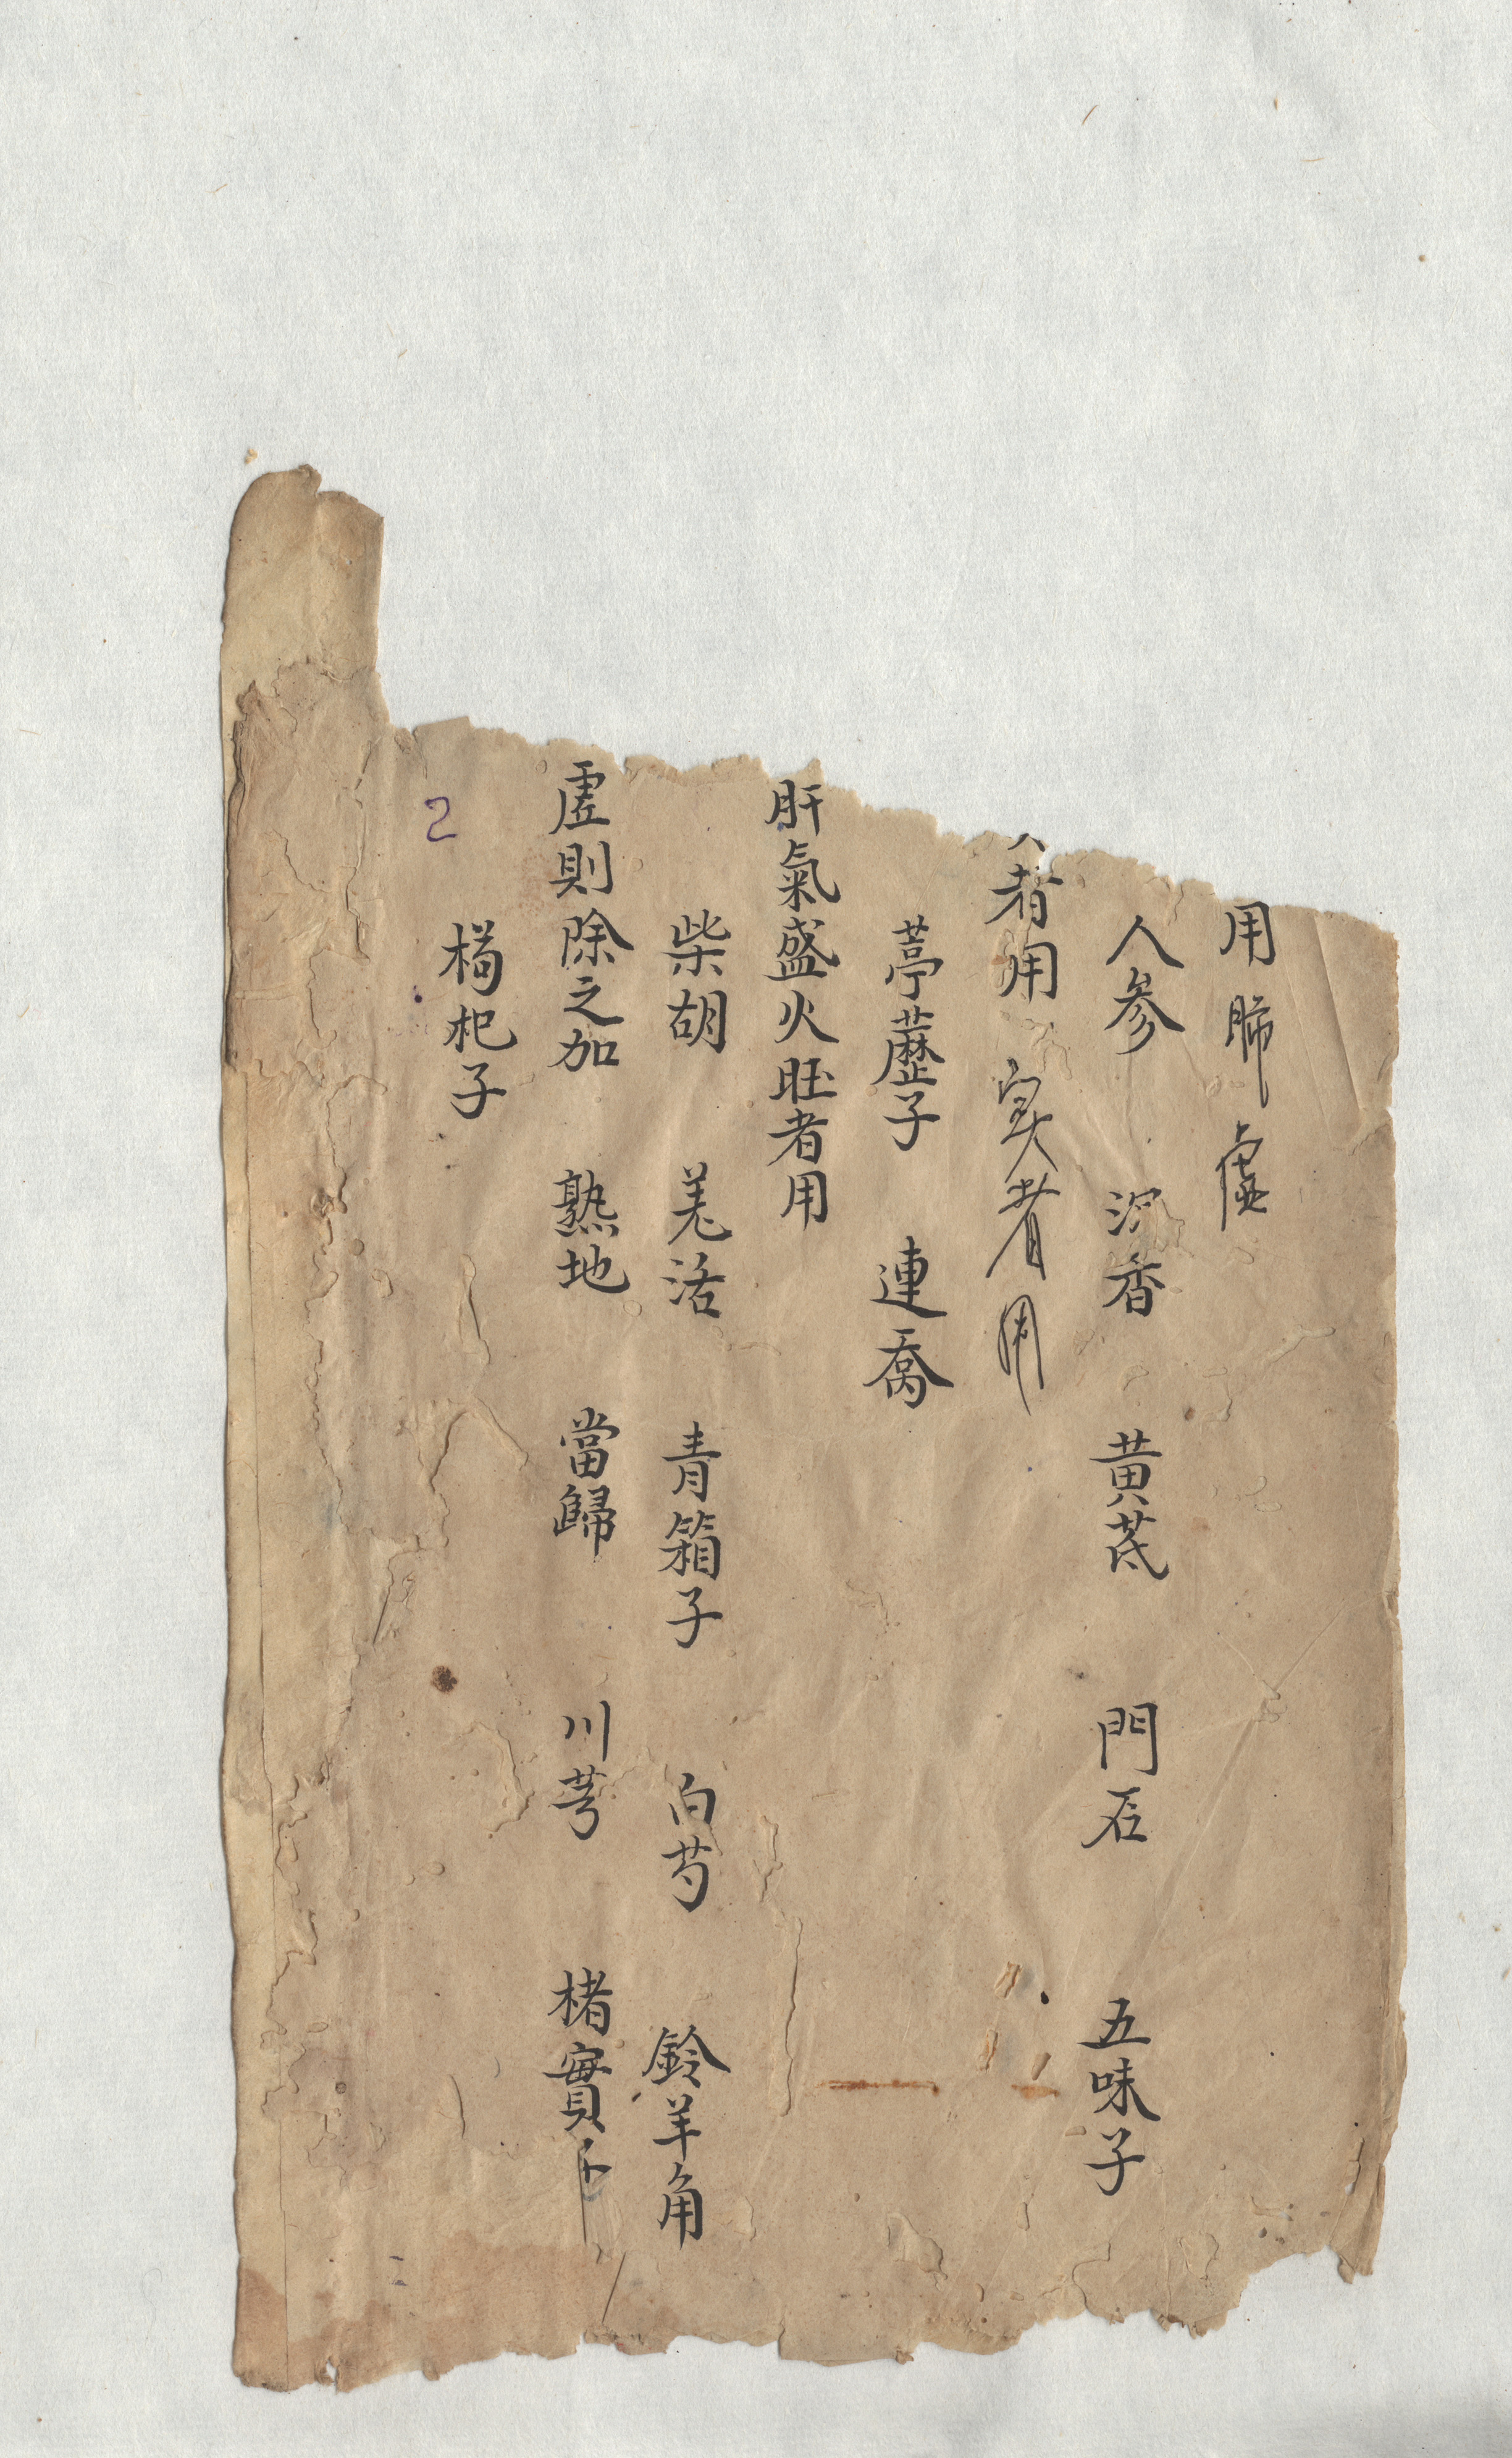 用肺虛
人參 沉香 黄芪 門石 五味子
者用 实者用
葶藶子 連喬
肝氣盛火旺者用
柴胡 羌活 青箱子 白芍 鈴羊角
虛則除之加 熟地 當歸 川芎 楮實子
杞子
2